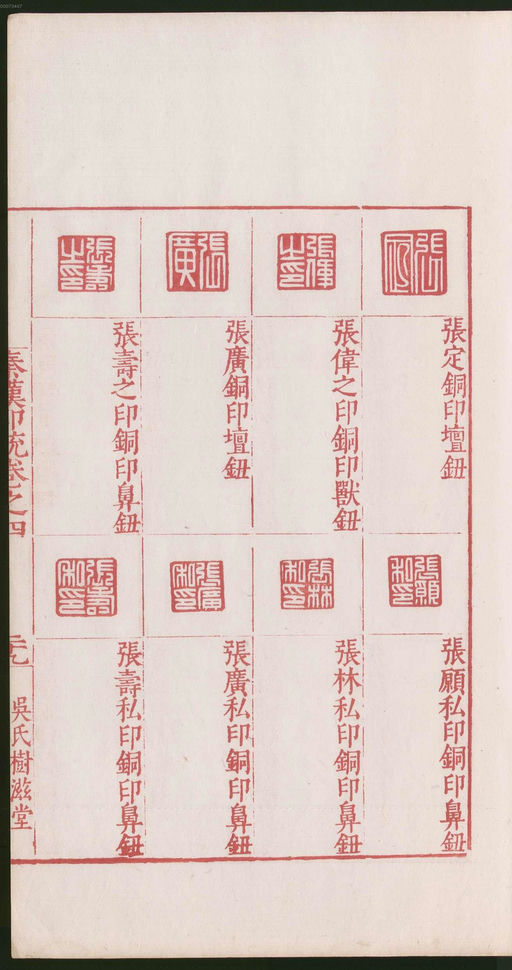 00073447
張定銅印壇鈕
張偉之印銅印獸鈕
張廣銅印壇鈕
張壽之印銅印鼻鈕
張願私印銅印鼻鈕
張林私印銅印鼻鈕
張廣私印銅印鼻鈕
張壽私印銅印鼻鈕
秦漢印統卷之四
吳氏樹滋堂